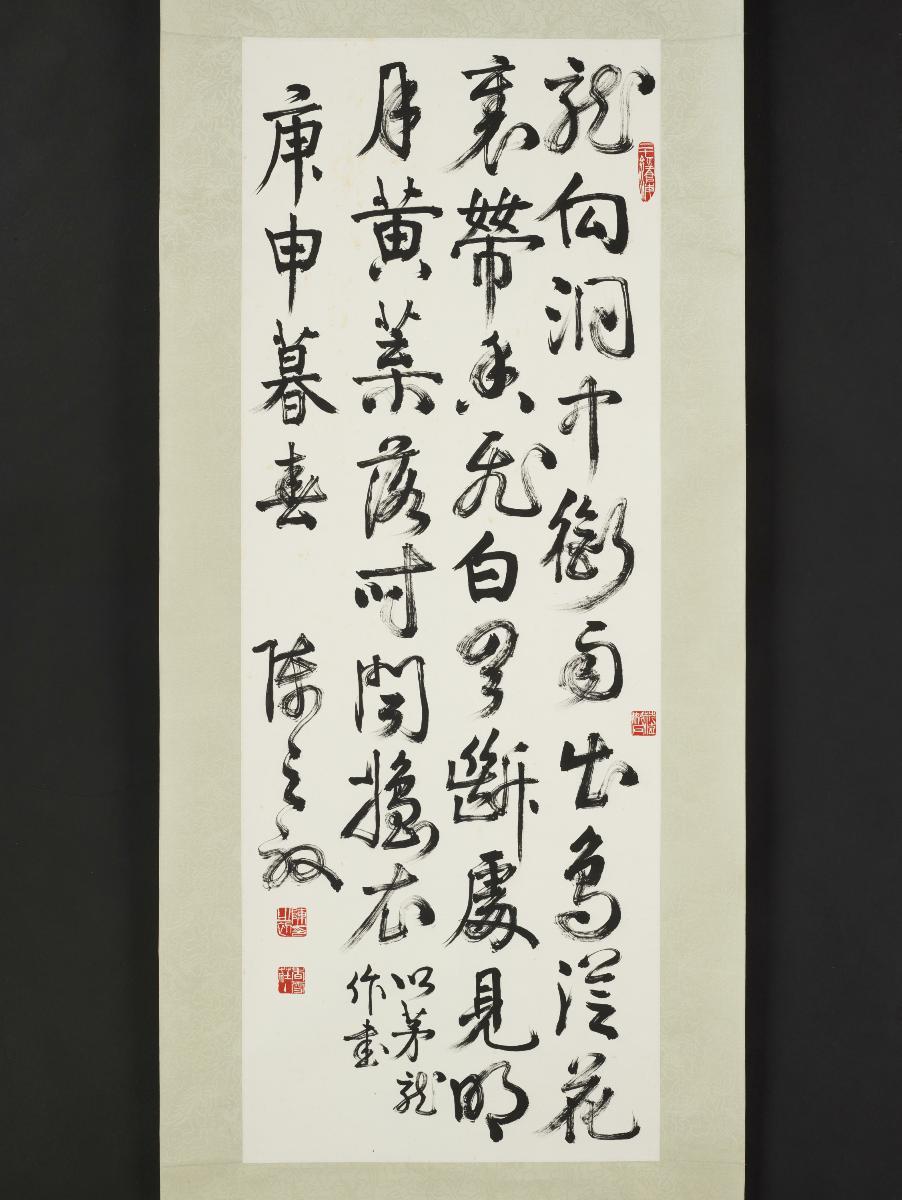 龍向洞中銜雨出鳥從花
裏帶香飛白雲斷處見明
月黃葉落時聞搗衣
以茅龍
作書
庚申暮春 陳之初